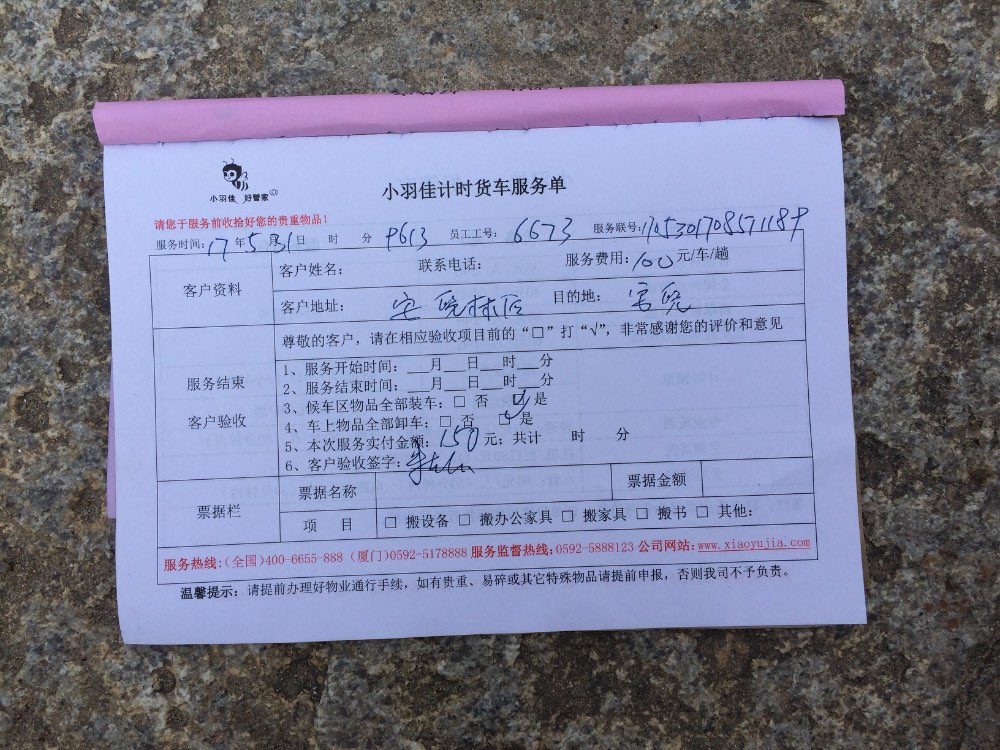 小羽佳 好管家
小羽佳计时货车服务单
请您于服务前收拾好您的贵重物品！
服务时间：17年5月31日 时 分 9613 员工工号： 6673 服务联号：
客户资料
客户姓名： 联系电话： 服务费用：100元/车/趟
客户地址： 目的地：
服务结束
客户验收
尊敬的客户，请在相应验收项目前的“□”打“√”，非常感谢您的评价和意见
1、服务开始时间：___月___日___时___分
2、服务结束时间：___月___日___时___分
3、候车区物品全部装车：□ 否 ☑ 是
4、车上物品全部卸车：□ 否 ☑ 是
5、本次服务实付金额：150元；共计 时 分
6、客户验收签字：
票据栏
票据名称 票据金额
项 目 □ 搬设备 □ 搬办公家具 □ 搬家具 □ 搬书 □ 其他：
服务热线：（全国）400-6655-888（厦门）0592-5178888 服务监督热线：0592-5888123 公司网站：www.xiaoyujia.com
温馨提示：请提前办理好物业通行手续，如有贵重、易碎或其它特殊物品请提前申报，否则我司不予负责。